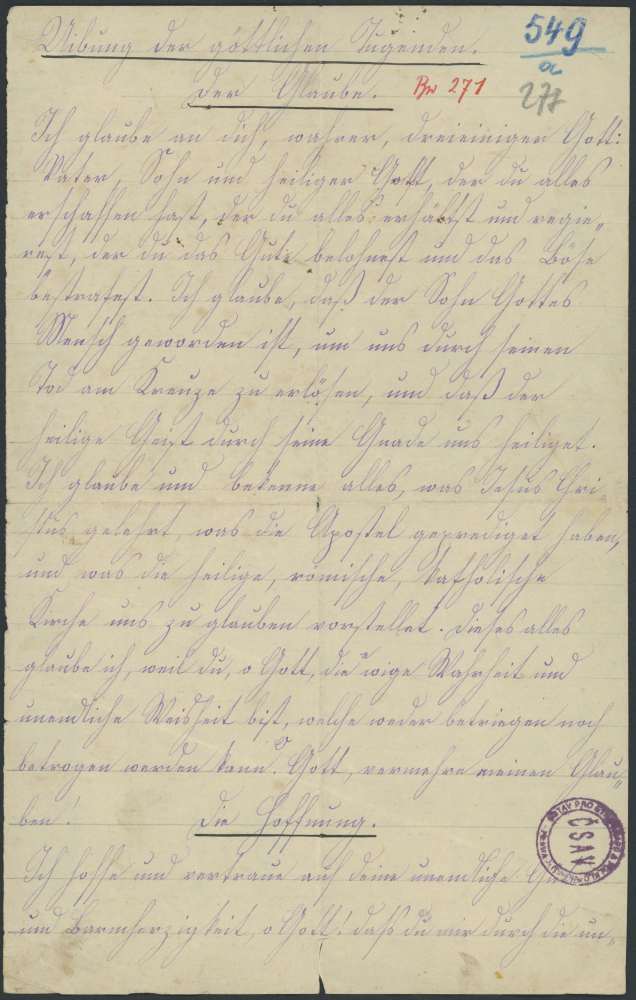 Uibung der göttlichen Tugenden.
549
a
277
Der Glaube.
Br 271
Ich glaube an dich, wahrer, dreieiniger Gott:
Vater, Sohn und heiliger Geist, der du alles
erschaffen hast, der du alles erhältst und regie„
rest, der du das Gute belohnest und das Böse
bestrafest. Ich glaube, daß der Sohn Gottes
Mensch geworden ist, um uns durch seinen
Tod am Kreuze zu erlösen, und daß der
heilige Geist durch seine Gnade uns heiliget.
Ich glaube und bekenne alles, was Jesus Chri
stus gelehrt, was die Apostel geprediget haben,
und was die heilige, römische, katholische
Kirche uns zu glauben vorstellet. Dieses alles
glaube ich, weil du, o Gott, die ewige Wahrheit und
unendliche Weisheit bist, welche weder betriegen noch
betrogen werden kann. O Gott, vermehre meinen Glau„
ben!
Die Hoffnung.
ČSAV
Ich hoffe und vertraue auf deine unendliche
und Barmherzigkeit, o Gott! daß du mir durch die un„